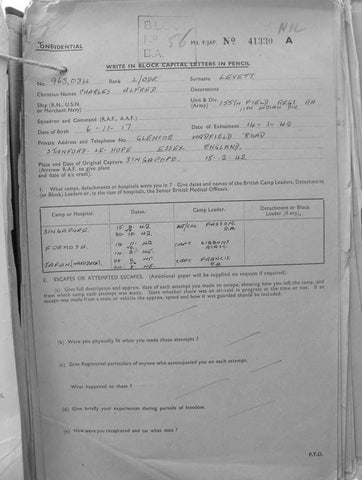 CONFIDENTIAL
BLOCK
56
M.I. 9/JAP. Nº 41339 A
NIL
WRITE IN BLOCK CAPITAL LETTERS IN PENCIL
No. Rank L/BDR Surname LEVETT
Christian Names CHARLES ALFRED. Decorations
Ship (R.N., U.S.N. or Merchant Navy)
Unit & Div. (Army) 155TH FIELD REGT RA 11TH INDIAN DIV
Squadron and Command (R.A.F., A.A.F.)
Date of Birth 6-11-17. Date of Enlistment 14-1-42
Private Address and Telephone No. GLENCOE ROAD
STANFORD-LE-HOPE ESSEX ENGLAND.
Place and Date of Original Capture. SINGAPORE. 15-2-42.
(Aircrew R.A.F. to give place and date of a/c crash).
1. What camps, detachments or hospitals were you in? Give dates and names of the British Camp Leaders, Detachment (or Block) Leaders or, in the case of hospitals, the Senior British Medical Officers.
Camp or Hospital. Dates. Camp Leader. Detachment or Block Leader (if any).
SINGAPORE 15 2 42 TO 10 42 LT/COL
FORMOSA. 11 42 CAPT GIBBONS
JAPAN 45 CAPT FRANCIS
2. ESCAPES OR ATTEMPTED ESCAPES. (Additional paper will be supplied on request if required).
(a) Give full description and approx. date of each attempt you made to escape, showing how you left the camp, and from which camp each attempt was made. State whether there was an air-raid in progress at the time or not. If an escape was made from a train or vehicle the approx. speed and how it was guarded should be included.
(b) Were you physically fit when you made these attempts?
(c) Give Regimental particulars of anyone who accompanied you on each attempt.
What happened to them?
(d) Give briefly your experiences during periods of freedom.
(e) How were you recaptured and on what date?
P.T.O.